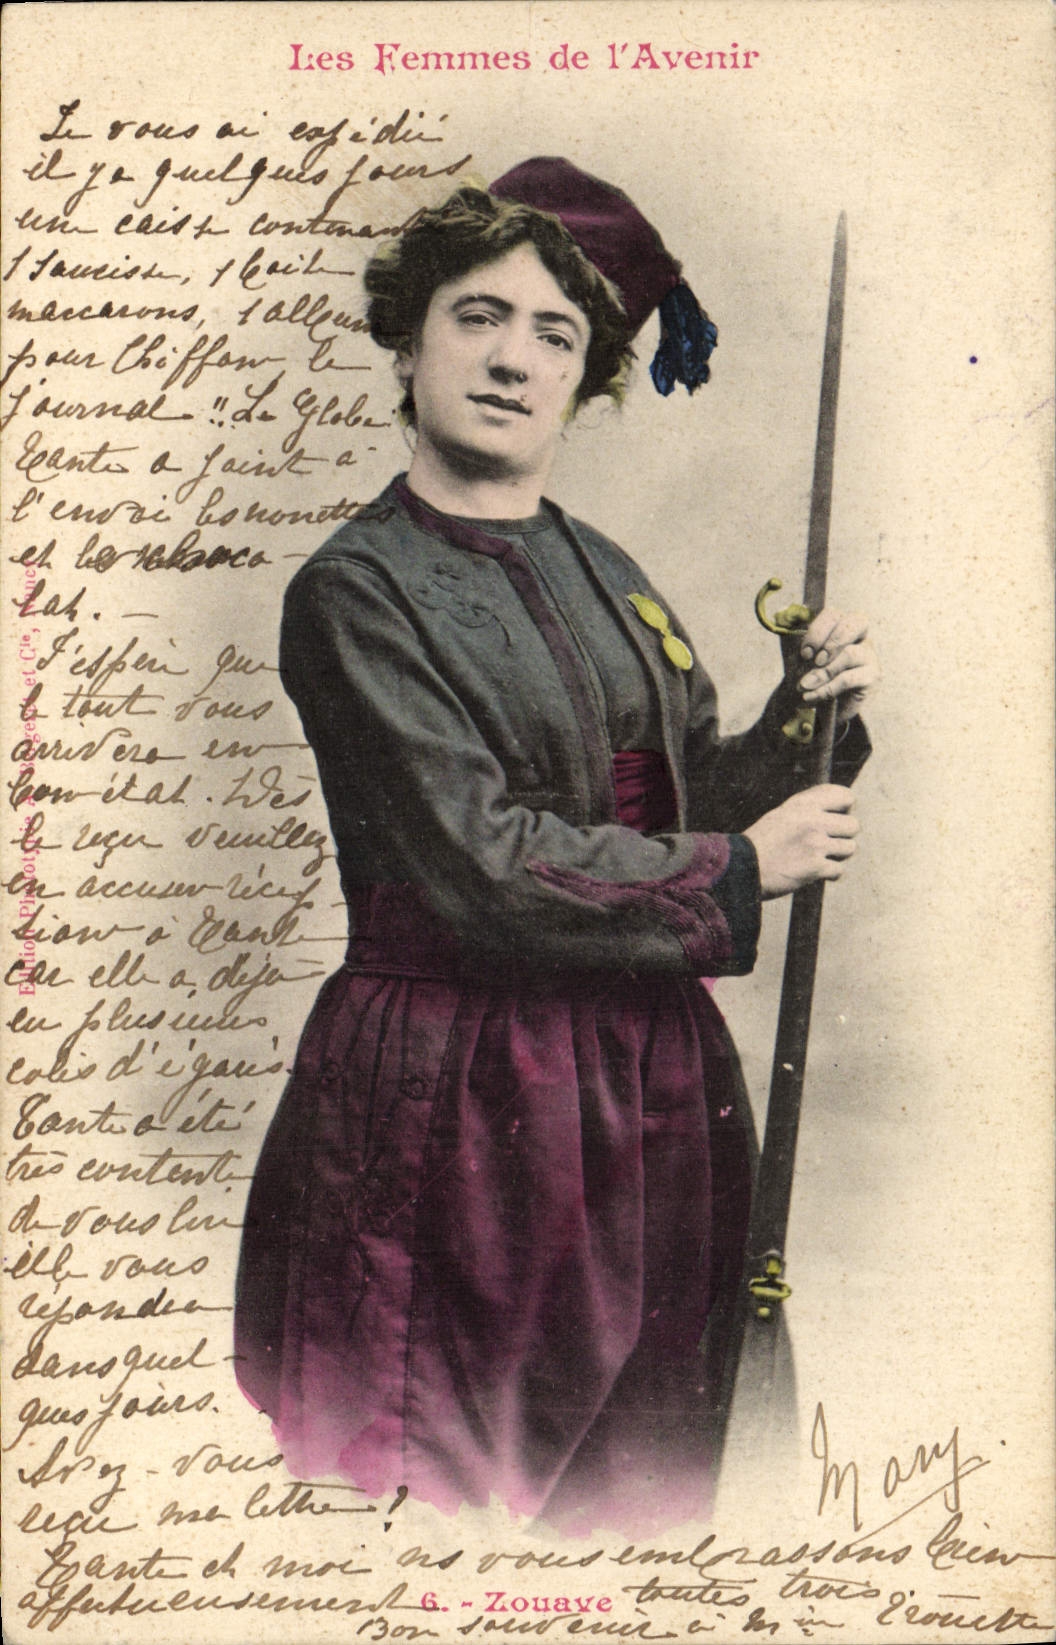 Les Femmes de l'Avenir
Je vous ai expédié
il y a quelques jours
une caisse contenant
1 saucisse, 1 boite
maccarons, 1 album
pour Chiffon le
journal "Le Globe
Tante a joint à
l'envoi les nonettes
et le choco-
lat. —
J'espère que
le tout vous
arrivera en
bon état. Dès
le reçu veuillez
en accuser récep
tion à Tante
car elle a déjà
eu plusieurs
colis d'égarés.
Tante a été
très contente
de vous lire
elle vous
répondra
dans quel-
ques jours.
Avez-vous
reçu ma lettre?
Tante et moi ns vous embrassons bien
affectueusement toutes trois.
Bon souvenir à Mme
Mary.
6. - Zouave
Edition Phototypie A. Bergeret et Cie, Nancy